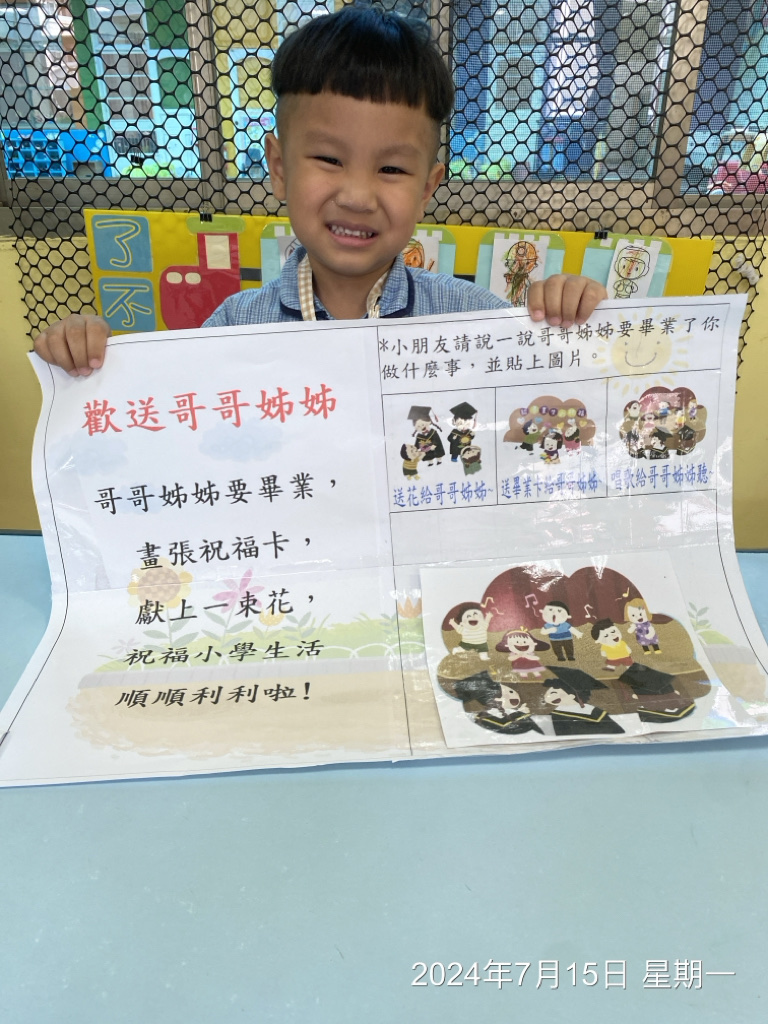 了
不
歡送哥哥姊姊
哥哥姊姊要畢業，
畫張祝福卡，
獻上一束花，
祝福小學生活
順順利利啦！
*小朋友請說一說哥哥姊姊要畢業了你
做什麼事，並貼上圖片。
送花給哥哥姊姊~
送畢業卡給哥哥姊姊~
唱歌給哥哥姊姊聽~
2024年7月15日 星期一